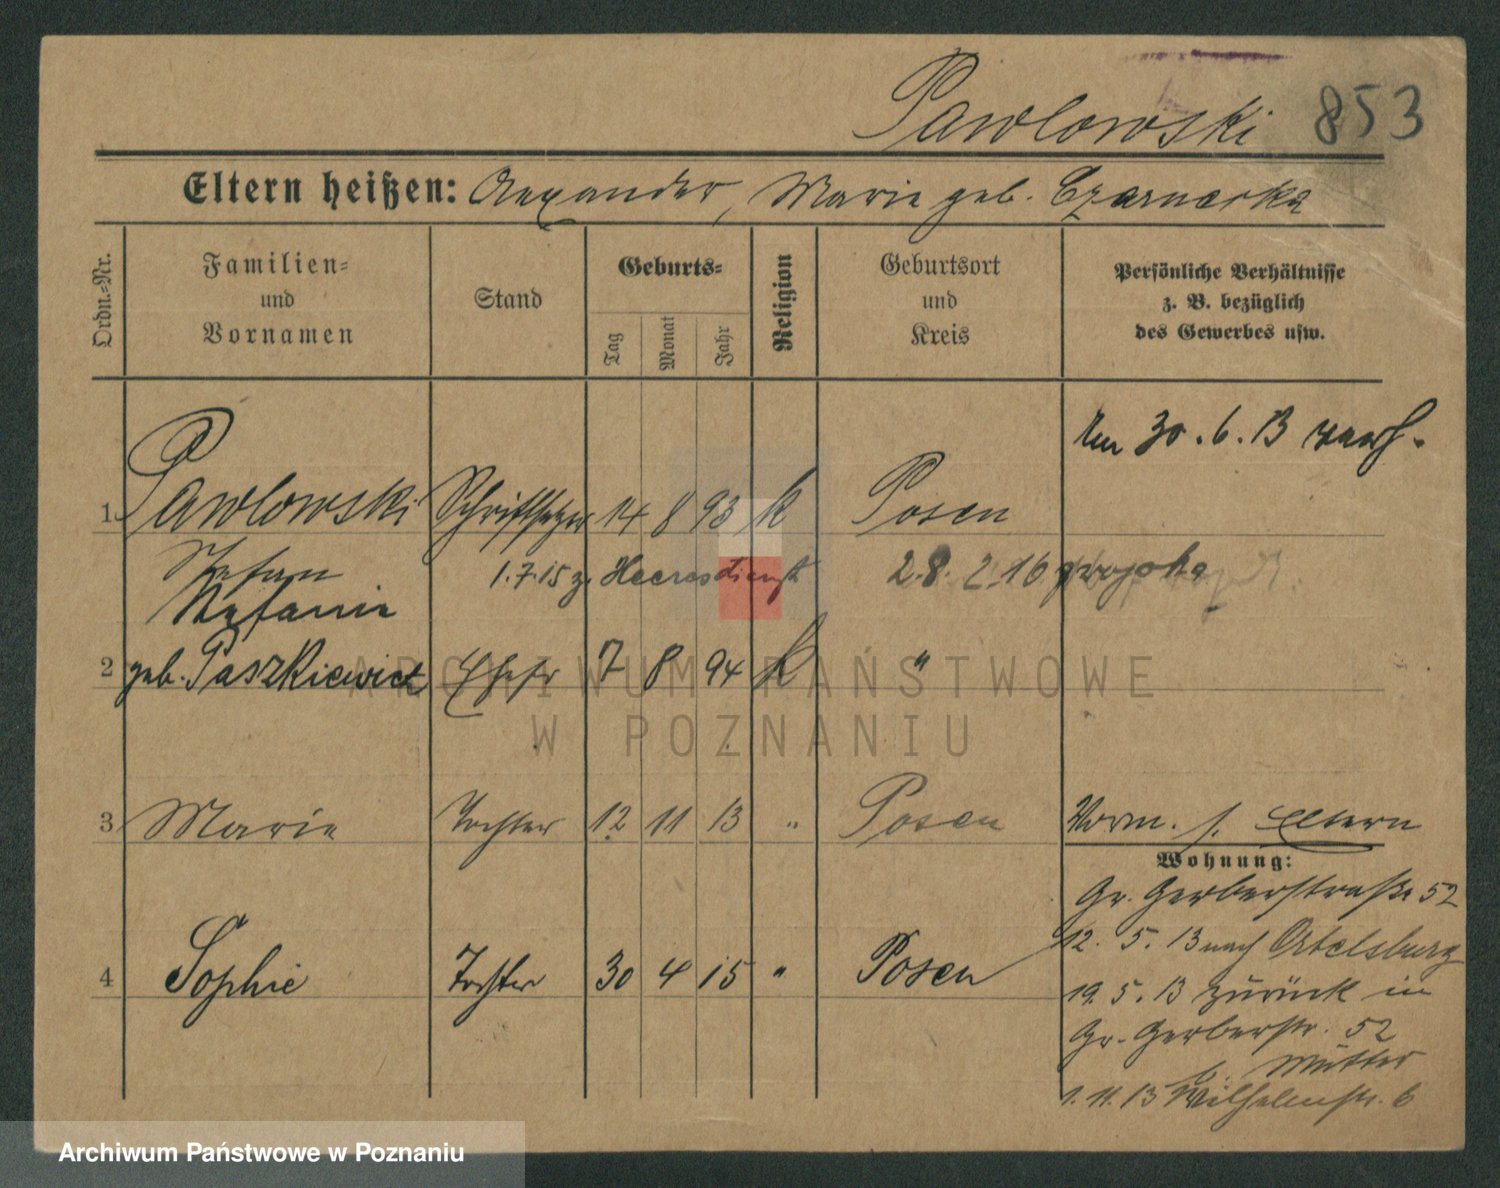 Pawlowski 853
Eltern heißen: Alexander, Marie geb. Czarnecka
Ordn.-Nr.
Familien-
und
Vornamen
Stand
Geburts-
Tag
Monat
Jahr
Religion
Geburtsort
und
Kreis
Persönliche Verhältnisse
z. B. bezüglich
des Gewerbes usw.
Am 30.6.13 verh.
1. Pawlowski Schriftsetzer 14 8 93 k Posen
Stefan 1.7.15 z. Heeresdienst 28. 2 16
Stefanie
2 geb. Paszkiewicz Ehefr 7 8 94 k "
3 Marie Tochter 12 11 13 " Posen
Vorm. s. Eltern
Wohnung:
Gr. Gerberstraße 52
12. 5. 13 nach Ortelsburg
4 Sophie Tochter 30 4 15 " Posen
19. 5. 13 zurück in
Gr. Gerberstr. 52
b. Mutter
1. 11. 13 Wilhelmstr. 6
ARCHIWUM PAŃSTWOWE
W POZNANIU
Archiwum Państwowe w Poznaniu